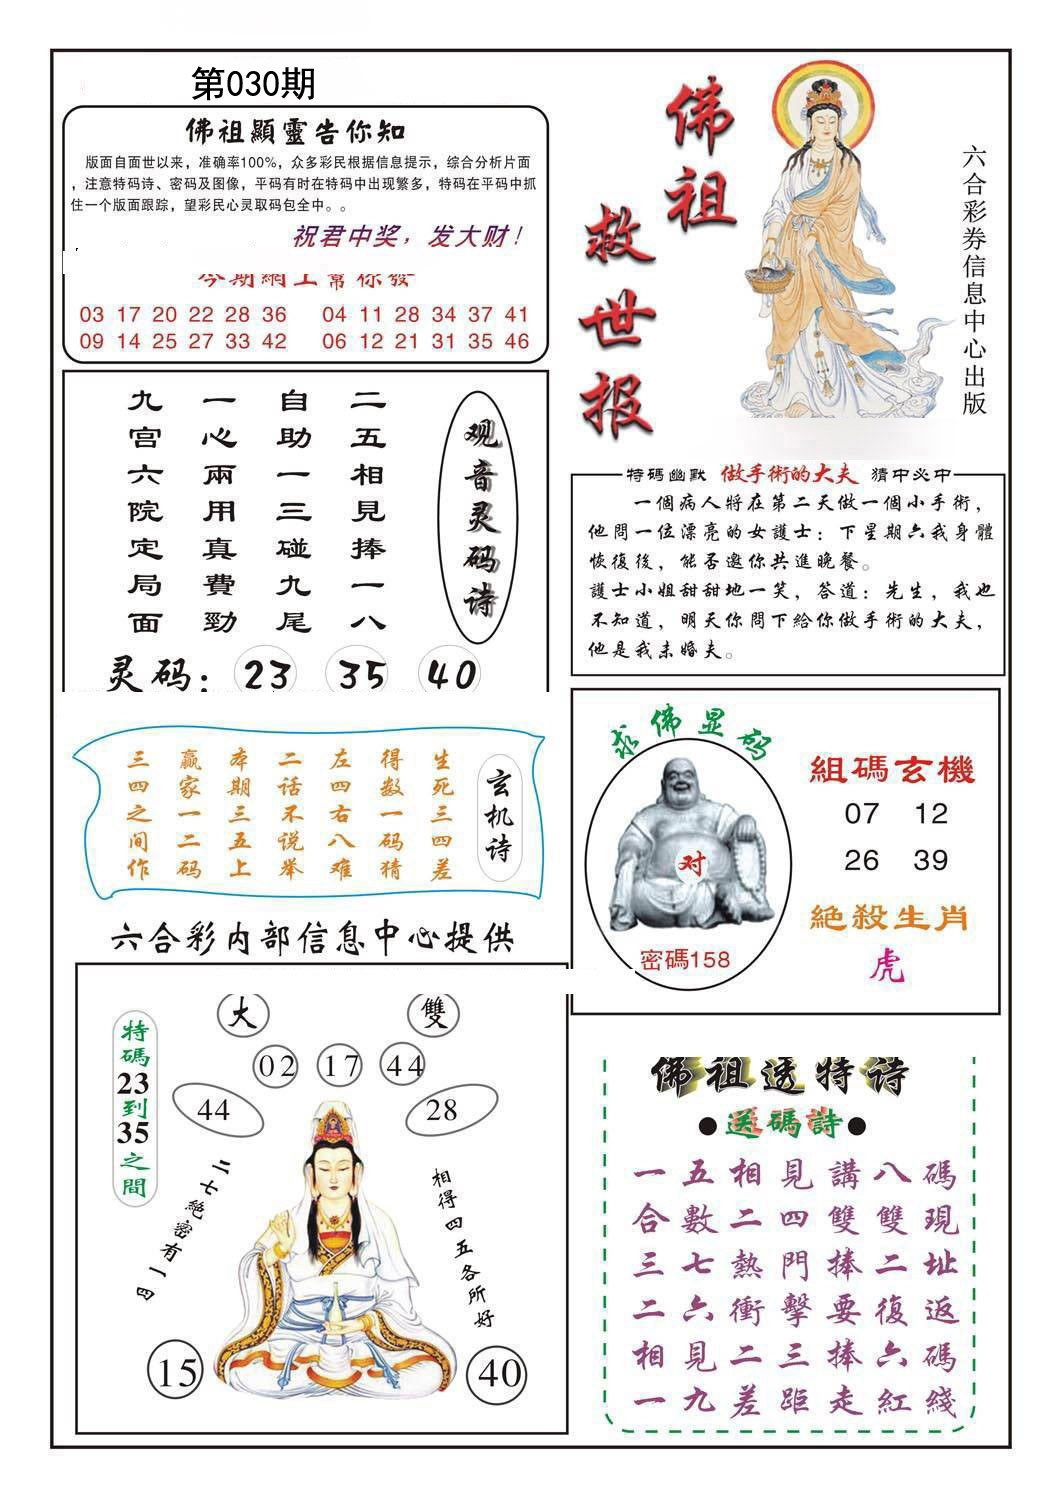 第030期
佛祖顯靈告你知
版面自面世以来，准确率100%，众多彩民根据信息提示，综合分析片面
，注意特码诗、密码及图像，平码有时在特码中出现繁多，特码在平码中抓
住一个版面跟踪，望彩民心灵取码包全中。。
祝君中奖，发大财！
今期網上幫你發
03 17 20 22 28 36 04 11 28 34 37 41
09 14 25 27 33 42 06 12 21 31 35 46
佛祖
救世报
六合彩券信息中心出版
观音灵码诗
二五相見捧一八
自助一三碰九尾
一心兩用真費勁
九宫六院定局面
灵码：23 35 40
特碼幽默 做手術的大夫 猜中必中
一個病人將在第二天做一個小手術，
他問一位漂亮的女護士：下星期六我身體
恢復後，能否邀你共進晚餐。
護士小姐甜甜地一笑，答道：先生，我也
不知道，明天你問下給你做手術的大夫，
他是我未婚夫。
玄机诗
生死三四差
得数一码猜
左四右八难
二话不说举
本期三五上
赢家一二码
三四之间作
求佛显码
对
密碼158
組碼玄機
07 12
26 39
絕殺生肖
虎
六合彩内部信息中心提供
特碼23到35之間
大 雙
02 17 44
44 28
二七絕密有一四
相得四五各所好
15 40
佛祖透特诗
●送碼詩●
一五相見講八碼
合數二四雙雙現
三七熱門捧二址
二六衝擊要復返
相見二三捧六碼
一九差距走紅綫